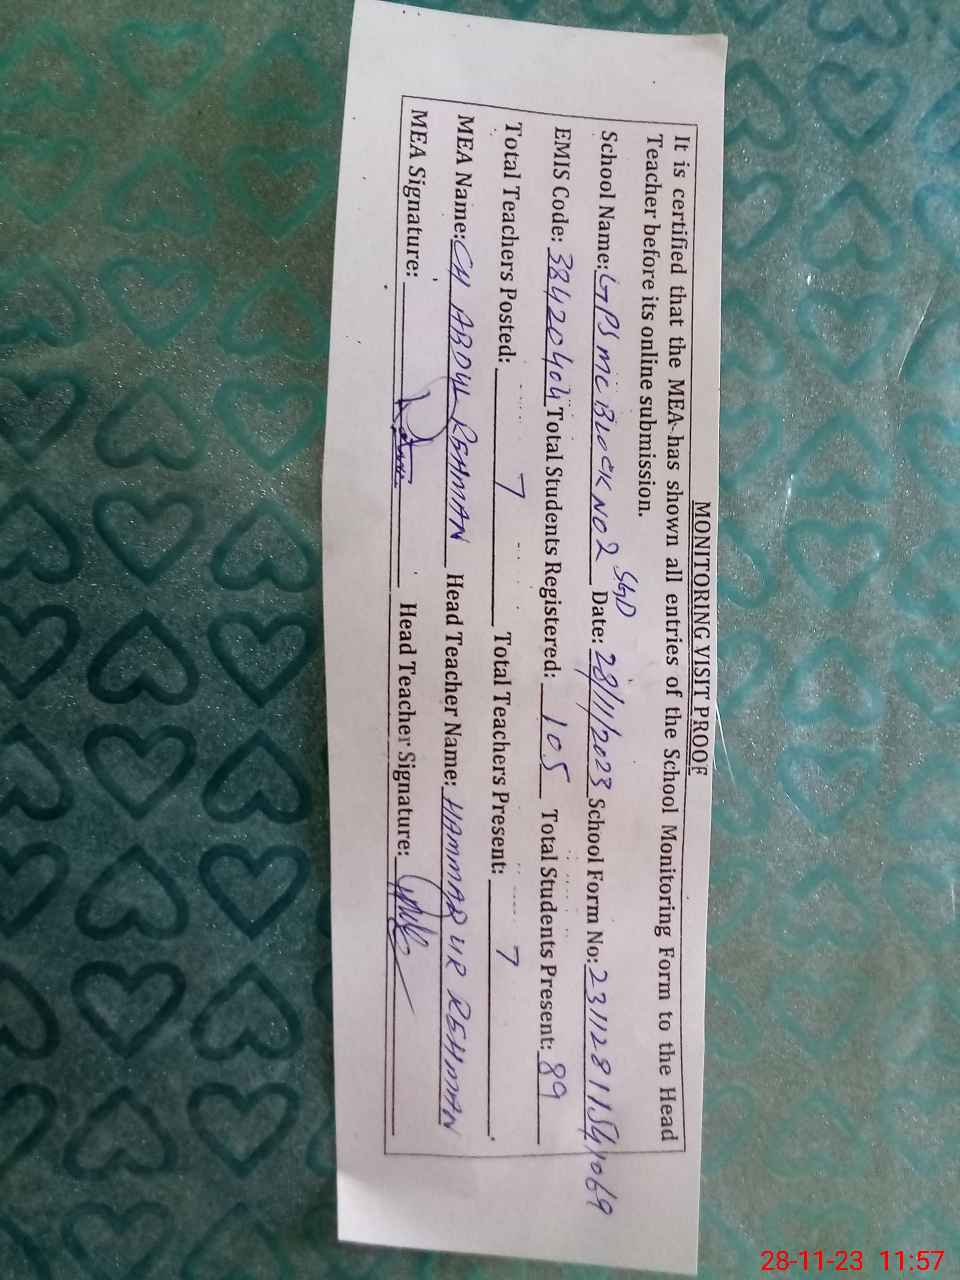 MONITORING VISIT PROOF
It is certified that the MEA has shown all entries of the School Monitoring Form to the Head
Teacher before its online submission.
School Name: GPS MC BLOCK NO 2 SGD Date: 28/11/2023 School Form No: 23112811541069
EMIS Code: 38420404 Total Students Registered: 105 Total Students Present: 89
Total Teachers Posted: 7 Total Teachers Present: 7
MEA Name: CH ABDUL REHMAN Head Teacher Name: HAMMAD UR REHMAN
MEA Signature: Head Teacher Signature:
28-11-23 11:57